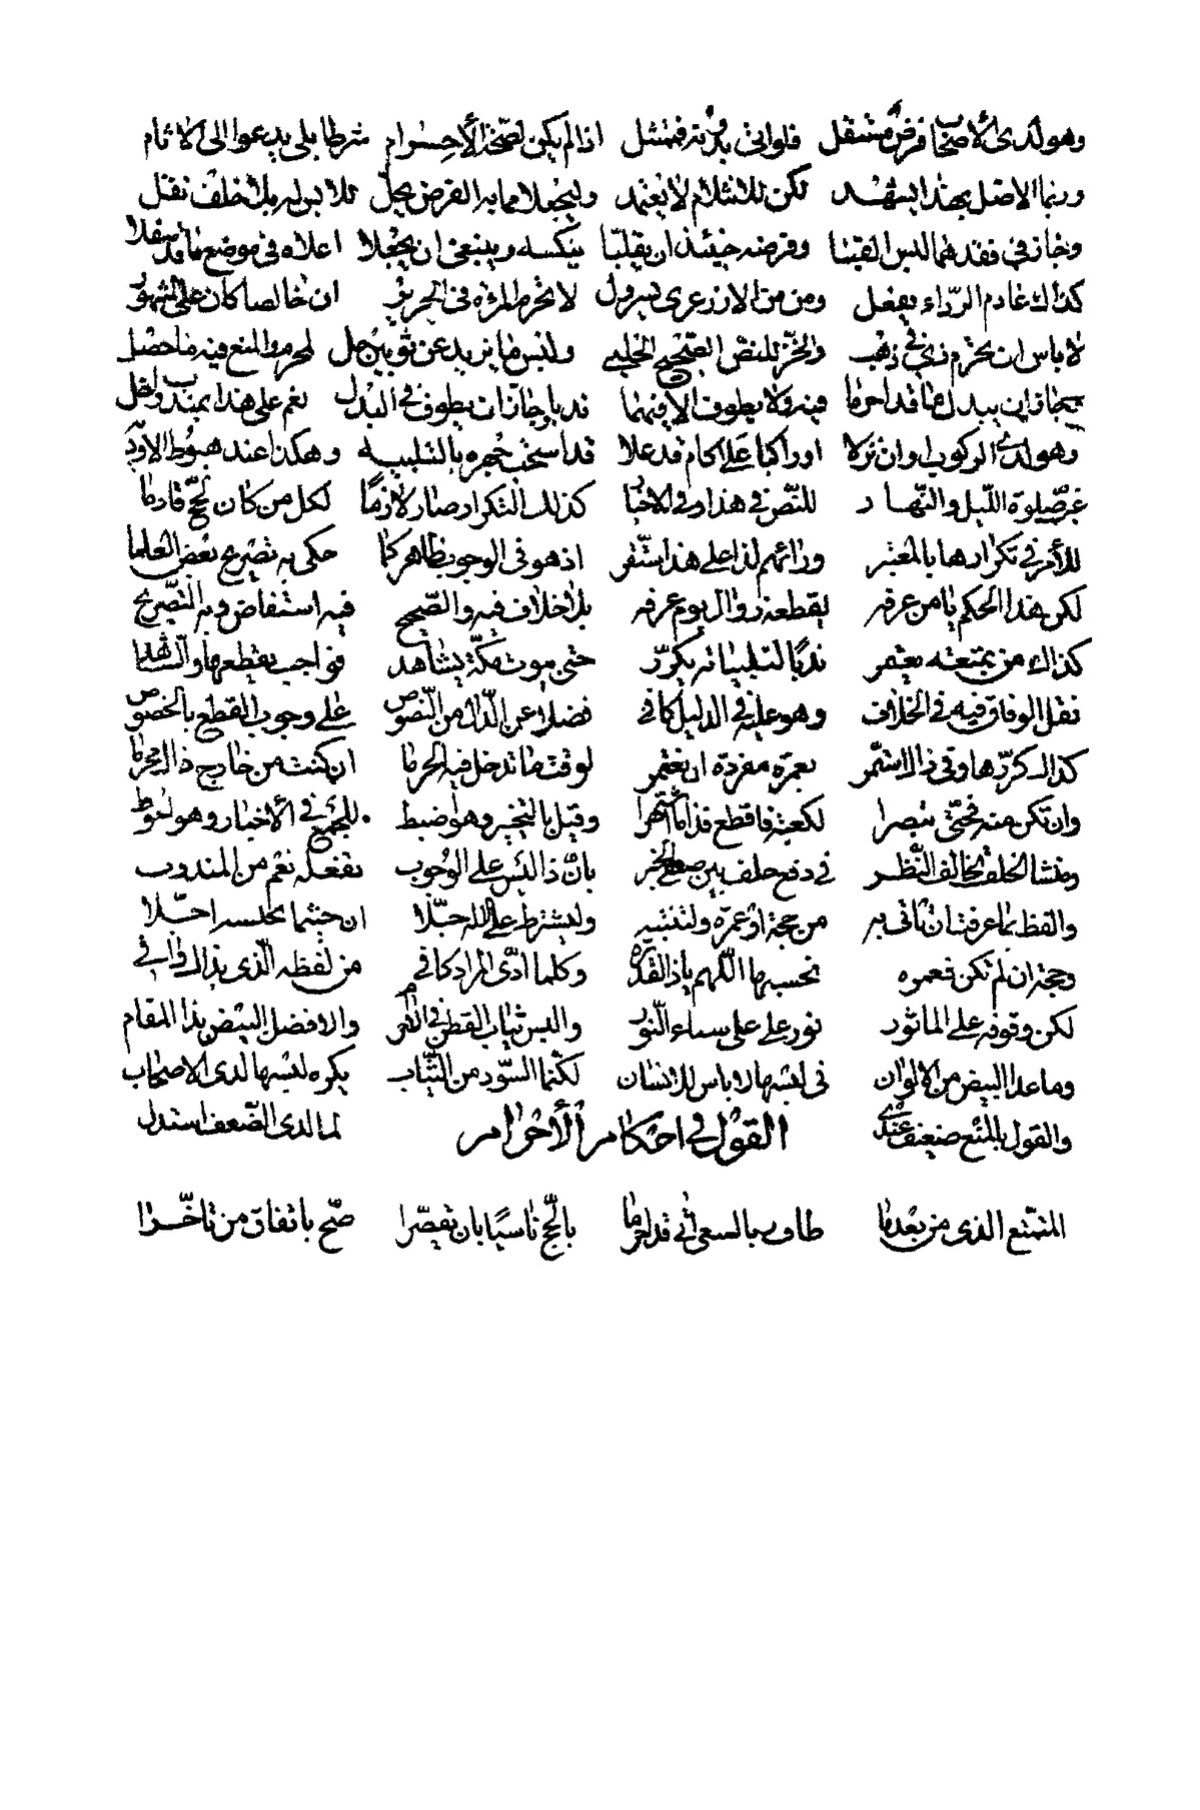 وهو لدى الأصحاب فرض مستقل فلو اتى بدونه فممتثل اذا لم يكن لصحة الأحرام شرطا بلى يدعوا الى الاثام
وربما الاصل بهذا يشهد لكن للانثلام لا يعتمد وليجعلا مما به الفرض يحل للابس له بلا خلف نقل
وجاز في فقدهما لبس القبا وفرضه حينئذ ان يقلبا ينكسه وينبغي ان يجعلا اعلاه في موضع ما قد سفلا
كذاك عادم الرداء يفعل ومن من الازر عرى يسرول لا تحرم المرءة في الحرير ان خالصا كان على المشهور
لا باس ان تحرم ذي في ذهب والخز للنص الصحيح الحلبي ولبس ما يزيد عن ثوبين حل لمحرم والمنع فيه ما حصل
جاز ان يبدل ما قد احرما فيه ولا يطوف الا فيهما ندبا وجاز ان يطوف في البدل نعم على هذا بمندوب اخل
وهو لدى الركوب او ان نزلا او راكبا على اكام قد علا قد استحب جهره بالتلبيه وهكذا عند هبوط الاوديه
غب صلوة الليل والنهار للنص في هذا وفي الاخبار كذلك التكرار صار لازما لكل من كان لحج قادما
للأمر في تكرارها بالمعتبر ورائهم لذا على هذا استقر اذ هو في الوجوب ظاهر كما حكى به تصريح بعض العلما
لكن هذا الحكم يا من عرفه يقطعه زوال يوم عرفه بلا خلاف فيه والصحيح فيه استفاض وبه التصريح
كذاك من بمتعته يعتمر ندبا لتلبياته يكرر حتى بيوت مكة يشاهد فواجب يقطعها والشاهد
نقل الوفاق فيه في الخلاف وهو عليه في الدليل كافي فضلا عن الذاك من النصوص على وجوب القطع بالخصوص
كذاك كررها وفي ذاك استمر بعمرة مفردة ان يعتمر لوقت ما تدخل فيه الحرما ان كنت من خارج ذاك محرما
وان تكن منه فحتى تبصرا لكعبة فاقطع فذا ما اشتهرا وقيل بالتخيير وهو اضبط للجمع في الأخبار وهو احوط
ومنشا الخلف تخالف النظر في دفع خلف بين صح الخبر بان ذا ليس على الوجوب تفعله نعم من المندوب
والفظ بما عرفت ان تاتي به من حجة او عمرة ولتنتبه وليشترط على الله حلا ان حيثما يحبسه احلا
وحجة ان لم تكن فعمره تحسبها اللهم ياذا القدره وكلما ادى المراد كافي من لفظه الذي بذاك وافي
لكن وقوفه على الماثور نور على على سماء النور والبس ثياب القطن في الأحرام والافضل البيض بذا المقام
وما عدا البيض من الالوان في لبسها لا باس للانسان لكنما السود من الثياب يكره لبسها لدى الاصحاب
والقول بالمنع ضعيف عندى لما لدى الضعف استدل
القول في احكام الأحرام
المتمتع الذي من بعد ما طاف بالسعي اتى قد احرما بالحج ناسيا بان يقصرا صح باتفاق من تاخرا